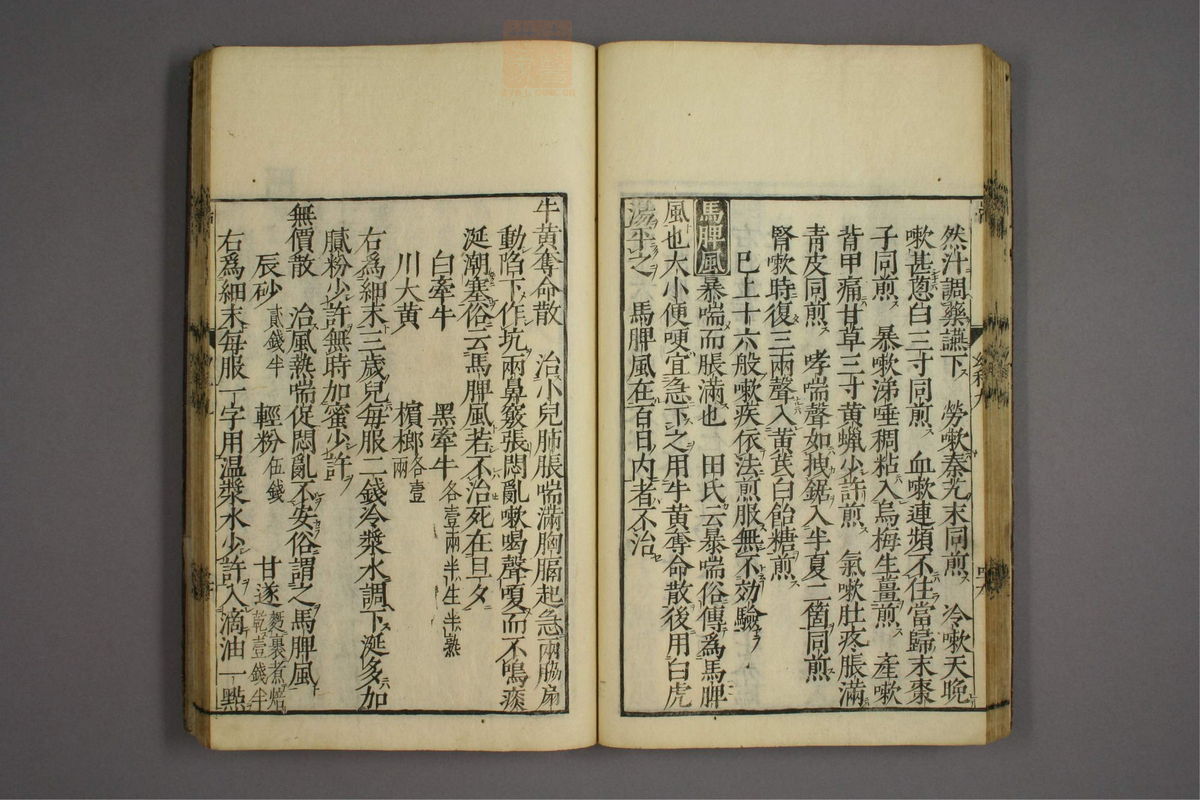 然汁調藥讌下　勞嗽秦艽末同煎　冷嗽天晚
嗽甚蔥白三寸同煎　血嗽連頻不住當歸末棗
子同煎　暴嗽涕唾稠粘入烏梅生薑煎　產嗽
背甲痛甘草三寸黄蝋少許煎　氣嗽肚疼脹滿
青皮同煎　哮喘聲如拽鋸入半夏二箇同煎
腎嗽時復三兩聲入黄芪白飴糖煎
已上十六般嗽疾依法煎服無不効驗
馬脾風暴喘而脹滿也　田氏云暴喘俗傳爲馬脾
風也大小便哽宜急下之用牛黄奪命散後用白虎
湯平之　馬脾風在百日內者不治
牛黄奪命散　治小兒肺脹喘滿胸膈起急兩脇扇
動陷下作坑兩鼻竅張悶亂嗽喝聲嗄而不鳴痰
涎潮塞俗云馬脾風若不治死在旦夕
白牽牛　黑牽牛各壹兩半生半熟
川大黄　檳榔各壹兩
右爲細末三歲兒每服二錢冷漿水調下涎多加
膩粉少許無時加蜜少許
無價散　治風熱喘促悶亂不安俗謂之馬脾風
辰砂貳錢半　輕粉伍錢　甘遂麪裹煮焙乾壹錢半
右爲細末每服一字用温漿水少許入滴油一點